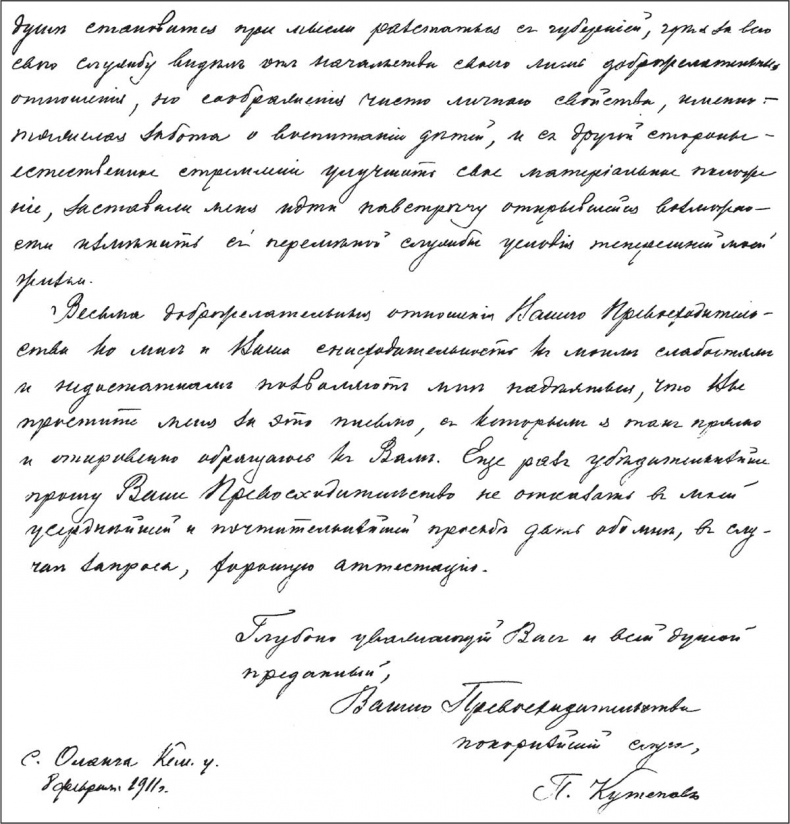 душѣ становится при мысли разстаться съ губерніей, гдѣ я за всю
свою службу видѣлъ отъ начальства своего лишь доброжелательныя
отношенія, но соображенія чисто личнаго свойства, именно:
тяжелая забота о воспитаніи дѣтей, и съ другой стороны –
естественное стремленіе улучшить свое матеріальное положе
ніе, заставили меня идти навстрѣчу открывшейся возможно–
сти измѣнить съ перемѣной службы условія теперешней моей
жизни.
Весьма доброжелательныя отношенія Вашего Превосходитель–
ства ко мнѣ и Ваша снисходительность къ моимъ слабостямъ
и недостаткамъ позволяютъ мнѣ надѣяться, что Вы
простите меня за это письмо, съ которымъ я такъ прямо
и откровенно обращаюсь къ Вамъ. Еще разъ убѣдительнѣйше
прошу Ваше Превосходительство не отказать въ моей
усерднѣйшей и почтительнѣйшей просьбѣ дать обо мнѣ, въ слу–
чаѣ запроса, хорошую аттестацію.
Глубоко уважающій Васъ и всей душой
преданный,
Вашего Превосходительства
покорнѣйшій слуга,
с. Оланга Кем. у.
8 февраля 1911 г.
П. Кутеповъ